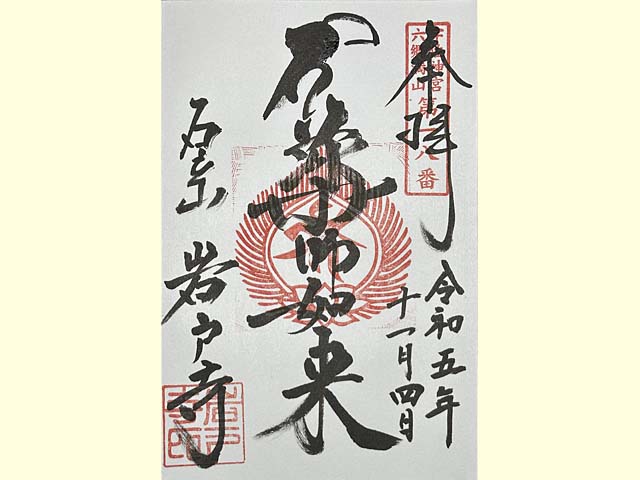 奉拝
六郷満山
第八番
薬師如来
令和五年
十一月四日
石立山
岩戸寺
岩戸寺印